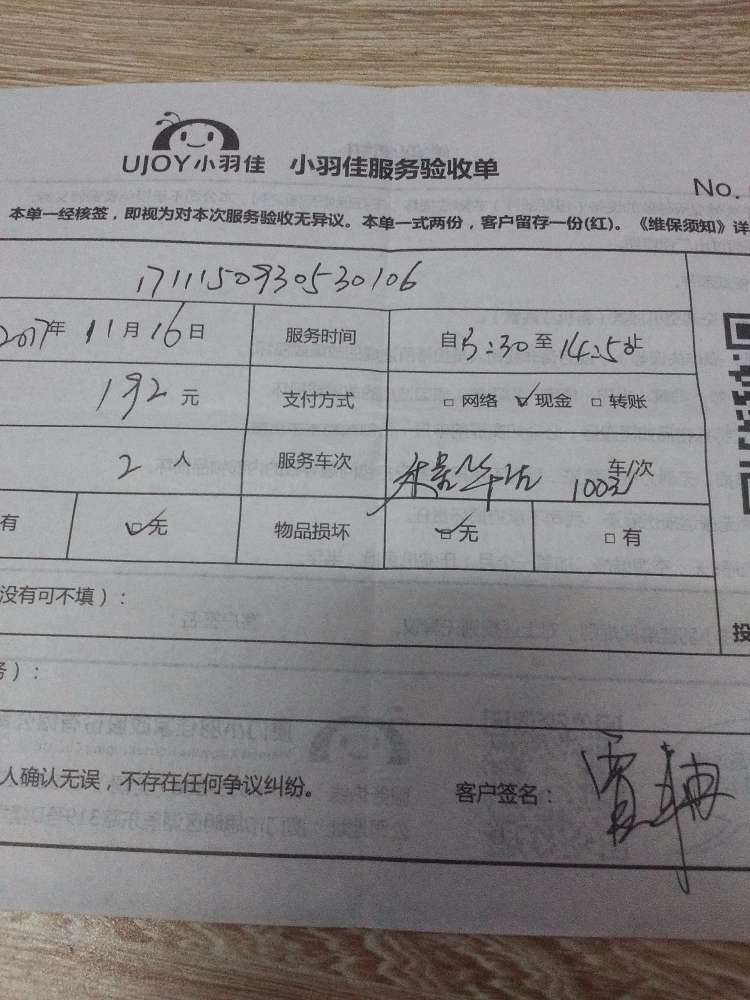 UJOY小羽佳 小羽佳服务验收单
No.
本单一经核签，即视为对本次服务验收无异议。本单一式两份，客户留存一份(红)。《维保须知》详
1711150930530106
2017年 11月 16日 服务时间 自 :30至
192 元 支付方式 □ 网络 ☑ 现金 □ 转账
2 人 服务车次 车/次
有 ☑ 无 物品损坏 ☑ 无 □ 有
没有可不填）：
投
务）：
人确认无误，不存在任何争议纠纷。 客户签名：